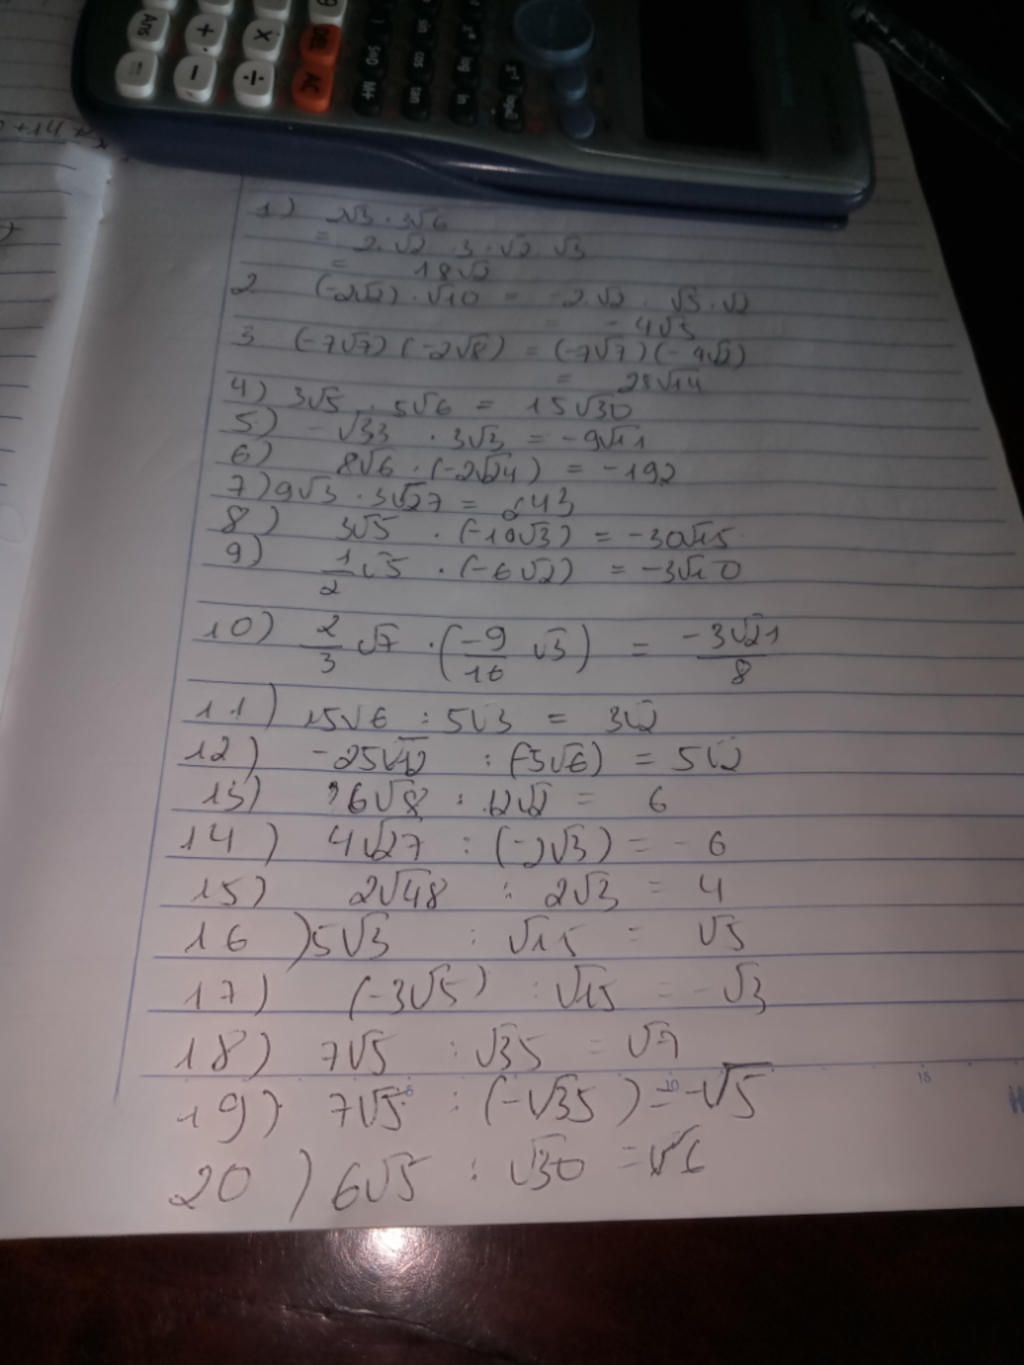 Ans + × DEL
= − ÷ AC
SHO M+ sin cos tan log ln
+14
1) 2√3 . 3√6
= 2.√2 . 3.√2.√3
= 18√2
2 (-2√2).√10 = -2.√2 . √5.√2
= -4√5
3 (-7√7)(-2√8) = (-7√7)(-4√2)
= 28√14
4) 3√5 . 5√6 = 15√30
5) -√33 . 3√3 = -9√11
6) 8√6 . (-2√24) = -192
7) 9√3 . 3√27 = 243
8) 3√5 . (-10√3) = -30√15
9) 1/2 √5 . (-6√2) = -3√10
10) 2/3 √7 . (-9/16 √3) = -3√21/8
11) 15√6 : 5√3 = 3√2
12) -25√12 : (-5√6) = 5√2
13) 36√8 : 12√2 = 6
14) 4√27 : (-2√3) = -6
15) 2√48 : 2√3 = 4
16) 5√3 : √15 = √5
17) (-3√5) : √15 = -√3
18) 7√5 : √35 = √7
19) 7√5 : (-√35) = -√5
20) 6√5 : √30 = √6
5 10 15